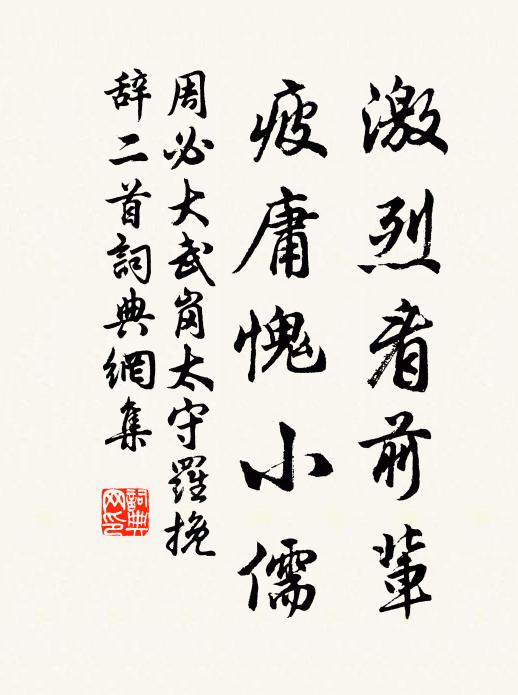 激烈看前輩
疲庸愧小儒
周必大武岗太守羅挽
辞二首詞典網集
詞典网印